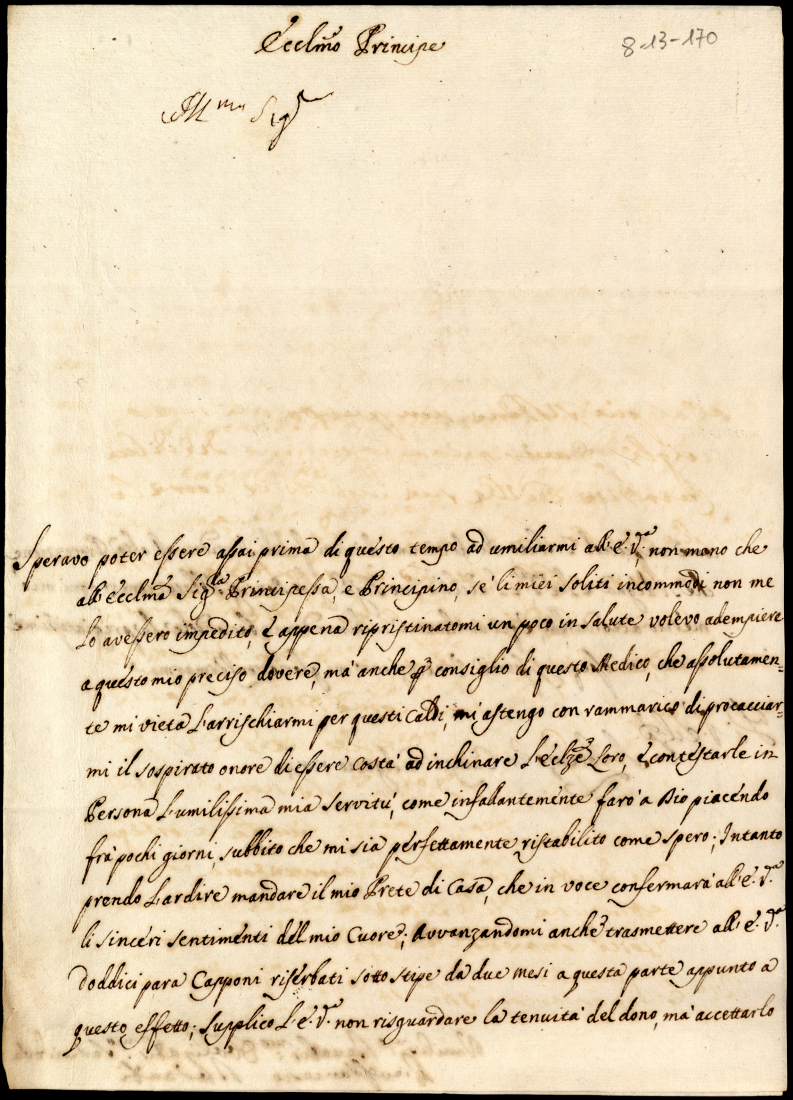 Ecclmo Principe
8-13-170
Illmo Sigr
Speravo poter essere assai prima di questo tempo ad umiliarmi all'E. Va, non mano che
all'Ecclma Sigra Principessa, e Principino, se li miei soliti incommodi non me
lo avessero impedito, è appena ripristinatomi un poco in salute volevo adempiere
a questo mio preciso dovere, ma' anche ꝑ consiglio di questo Medico, che assolutamen=
te mi vieta l'arrischiarmi per questi Caldi, mi astengo con rammarico di procacciar=
mi il sospirato onore di essere costa' ad inchinare l'Eclze Loro, è contestarle in
Persona l'umilissima mia servitu', come infallantemente faro' a Dio piacendo
fra' pochi giorni, subbito che mi sia perfettamente ristabilito come spero; Intanto
prendo l'ardire mandare il mio Prete di Casa, che in voce confermara' all'E. Va
li sinceri sentimenti del mio Cuore; Avvanzandomi anche trasmettere all'E. Va
doddici para Capponi riserbati sotto stipe da due mesi a questa parte appunto a
questo effetto; supplico l'E. Va non risguardare la tenuita' del dono, ma' accettarlo